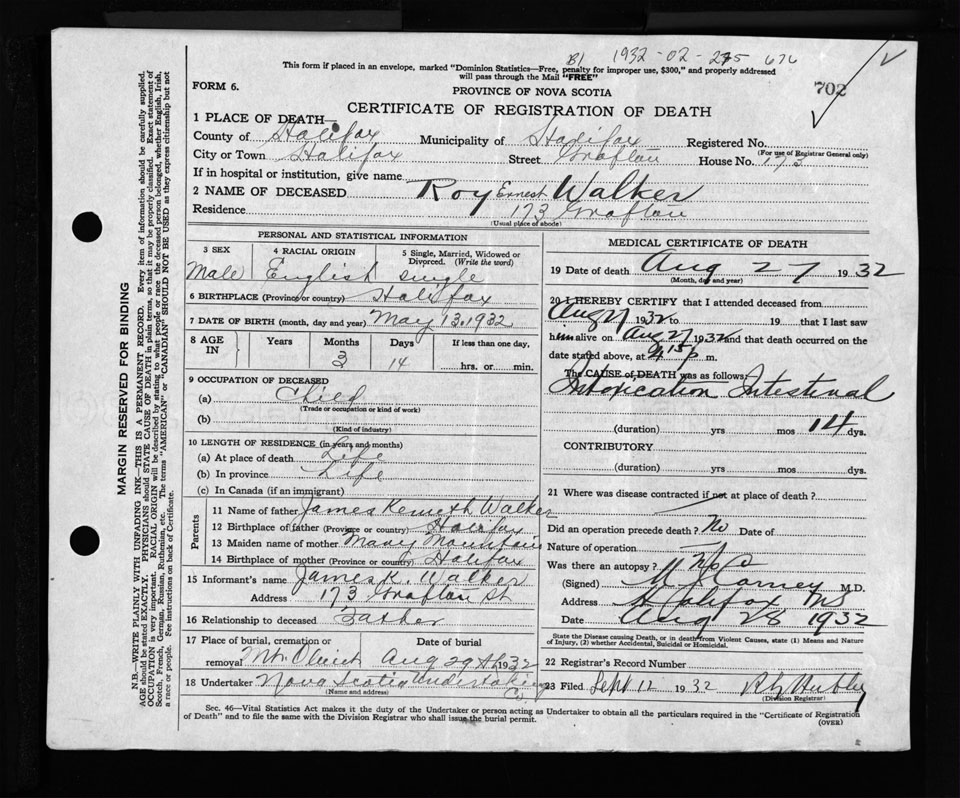 This form if placed in an envelope, marked "Dominion Statistics—Free, penalty for improper use, $300," and properly addressed
will pass through the Mail "FREE"
702
FORM 6.
PROVINCE OF NOVA SCOTIA
CERTIFICATE OF REGISTRATION OF DEATH
1 PLACE OF DEATH—
County of Halifax Municipality of Halifax Registered No.
(For use of Registrar General only)
City or Town Halifax Street Grafton House No. 173
If in hospital or institution, give name
2 NAME OF DECEASED Roy Ernest Walker
Residence 173 Grafton
(Usual place of abode)
PERSONAL AND STATISTICAL INFORMATION
3 SEX 4 RACIAL ORIGIN 5 Single, Married, Widowed or Divorced. (Write the word)
Male English single
6 BIRTHPLACE (Province or country) Halifax
7 DATE OF BIRTH (month, day and year) May 13, 1932
8 AGE IN Years Months Days If less than one day,
3 14 hrs. or min.
9 OCCUPATION OF DECEASED
(a) Child
(Trade or occupation or kind of work)
(b)
(Kind of industry)
10 LENGTH OF RESIDENCE (in years and months)
(a) At place of death Life
(b) In province Life
(c) In Canada (if an immigrant)
Parents
11 Name of father James Kenneth Walker
12 Birthplace of father (Province or country) Halifax
13 Maiden name of mother Mary Mountain
14 Birthplace of mother (Province or country) Halifax
15 Informant's name James K. Walker
Address 173 Grafton St
16 Relationship to deceased Father
17 Place of burial, cremation or removal Date of burial
Mt. Olivet Aug 29th 1932
18 Undertaker Nova Scotia Undertaking Co
(Name and address)
MEDICAL CERTIFICATE OF DEATH
19 Date of death Aug 27 1932
(Month, day and year)
20 I HEREBY CERTIFY that I attended deceased from
Aug 27 1932 to 19 that I last saw
him alive on Aug 27 1932 and that death occurred on the
date stated above, at 9 15 p m.
The CAUSE of DEATH was as follows:
Intoxication Intestinal
(duration) yrs mos 14 dys.
CONTRIBUTORY
(duration) yrs mos dys.
21 Where was disease contracted if not at place of death?
Did an operation precede death? No Date of
Nature of operation
Was there an autopsy? No
(Signed) Carney M.D.
Address Halifax NS
Date Aug 28 1932
State the Disease causing Death, or in death from Violent Causes, state (1) Means and Nature
of Injury, (2) whether Accidental, Suicidal or Homicidal.
22 Registrar's Record Number
23 Filed Sept 12 1932
(Division Registrar)
Sec. 46—Vital Statistics Act makes it the duty of the Undertaker or person acting as Undertaker to obtain all the particulars required in the "Certificate of Registration
of Death" and to file the same with the Division Registrar who shall issue the burial permit.
(OVER)
MARGIN RESERVED FOR BINDING
N.B.—WRITE PLAINLY WITH UNFADING INK—THIS IS A PERMANENT RECORD. Every item of information should be carefully supplied.
AGE should be stated EXACTLY. PHYSICIANS should STATE CAUSE OF DEATH in plain terms, so that it may be properly classified. Exact statement of
OCCUPATION is very important. RACIAL ORIGIN will be described by stating to what people or race the deceased person belonged, whether English, Irish,
Scotch, French, German, Russian, Ruthenian, etc. The terms "AMERICAN" or "CANADIAN" SHOULD NOT BE USED as they express citizenship but not
a race or people. See instructions on back of Certificate.